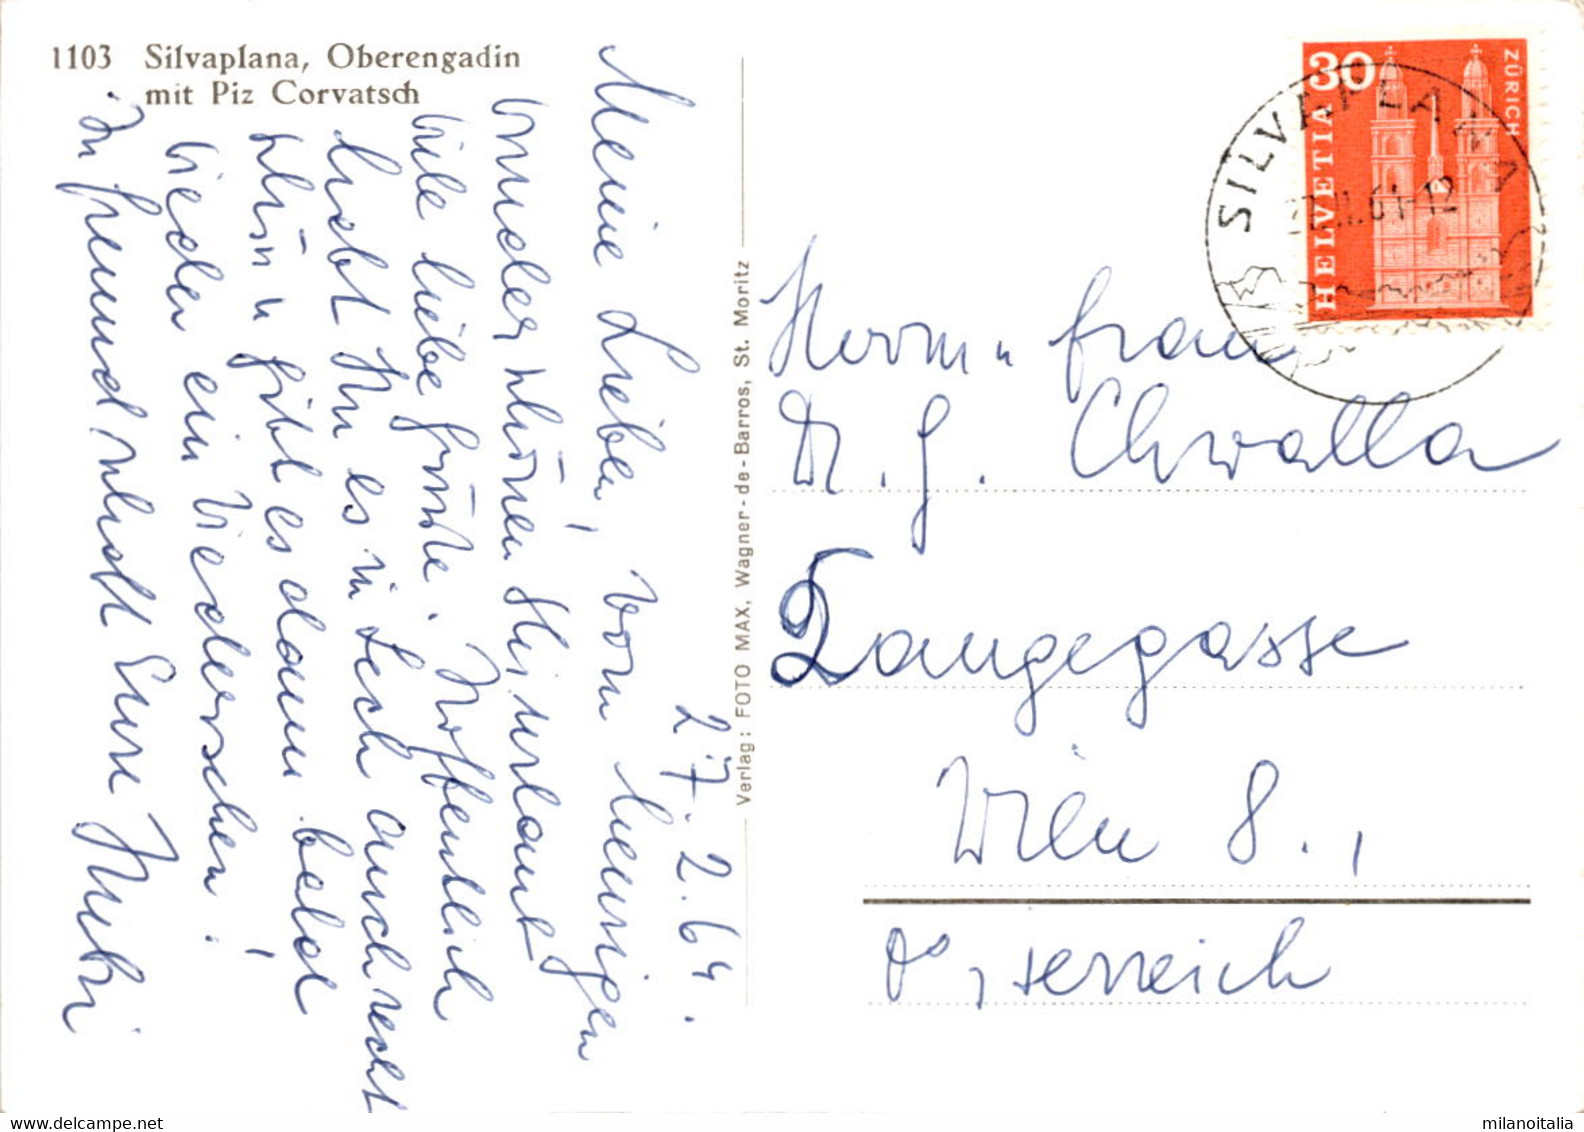 1103 Silvaplana, Oberengadin
mit Piz Corvatsch
27.2.64.
Meine Lieben, vom heurigen
wunderschönen Skiurlaub
viele liebe Grüße. Hoffentlich
habt Ihr es in Lech auch recht
schön u gibt es dann bald
wieder ein Wiedersehen!
In Freundschaft Eure
Verlag: FOTO MAX, Wagner-de-Barros, St. Moritz
30
HELVETIA
ZÜRICH
SILVAPLANA
64-12
Herrn u Frau
Dr. G. Chwalla
Langegasse
Wien 8.,
Österreich
milanoitalia